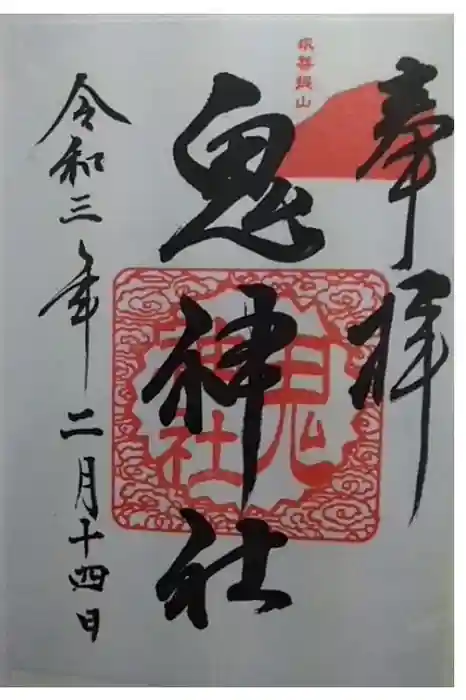 奉拝
鬼神社
鬼
神社
令和三年二月十四日